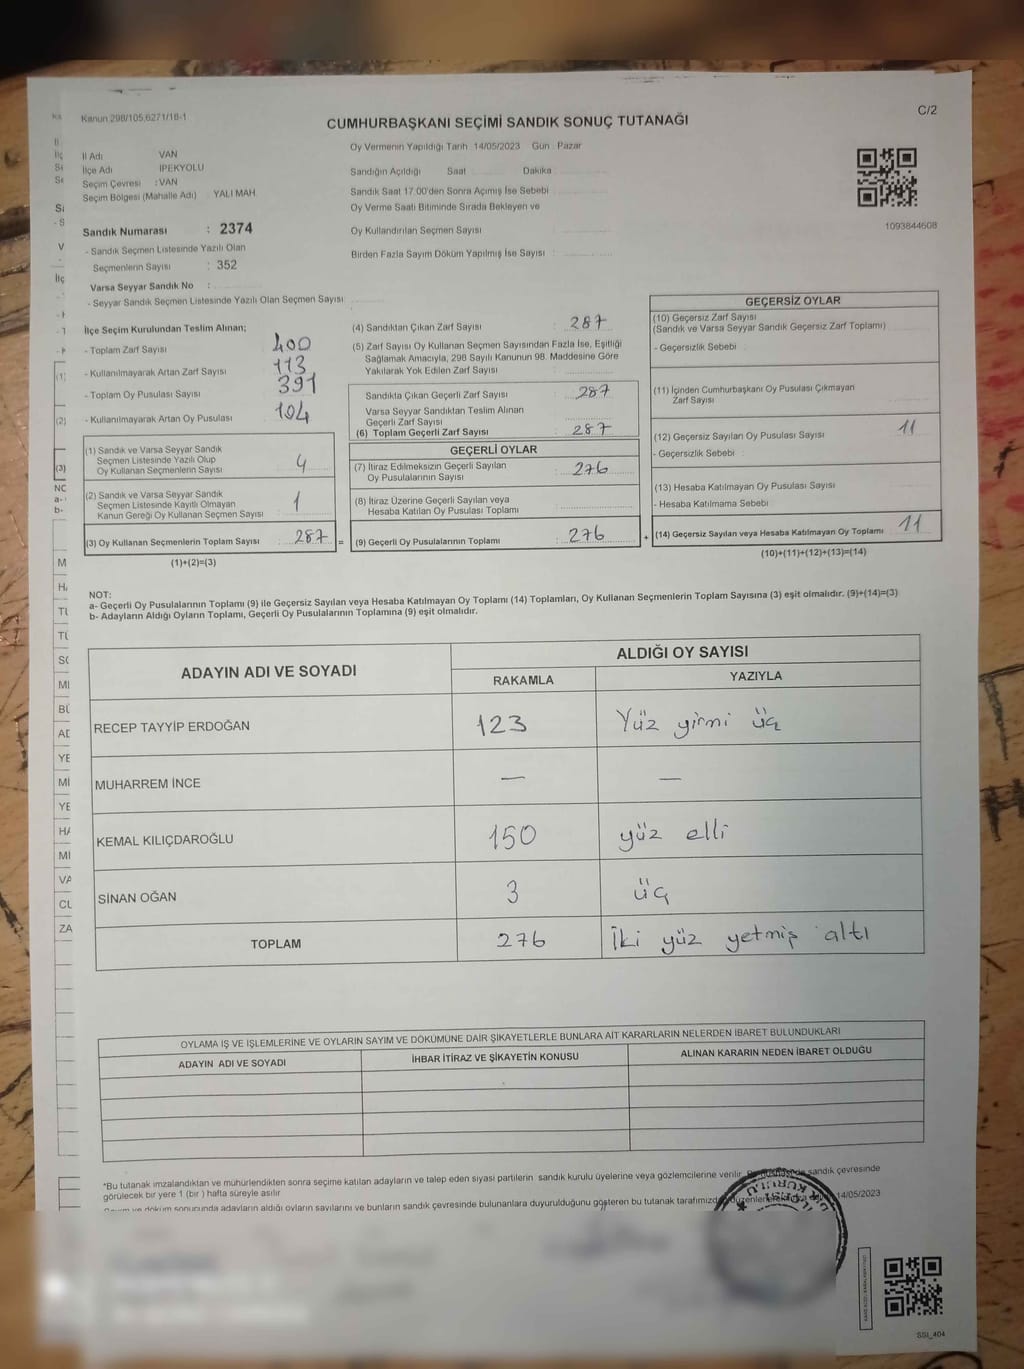 C/2
Kanun 298/105,6271/18-1
CUMHURBAŞKANI SEÇİMİ SANDIK SONUÇ TUTANAĞI
İl Adı VAN
İlçe Adı İPEKYOLU
Seçim Çevresi : VAN
Seçim Bölgesi (Mahalle Adı) YALI MAH.
Sandık Numarası : 2374
- Sandık Seçmen Listesinde Yazılı Olan
Seçmenlerin Sayısı : 352
Varsa Seyyar Sandık No :
- Seyyar Sandık Seçmen Listesinde Yazılı Olan Seçmen Sayısı
Oy Vermenin Yapıldığı Tarih 14/05/2023 Gün : Pazar
Sandığın Açıldığı Saat Dakika
Sandık Saat 17.00'den Sonra Açımış İse Sebebi
Oy Verme Saati Bitiminde Sırada Bekleyen ve
Oy Kullandırılan Seçmen Sayısı :
Birden Fazla Sayım Döküm Yapılmış İse Sayısı :
1093844608
İlçe Seçim Kurulundan Teslim Alınan;
- Toplam Zarf Sayısı 400
- Kullanılmayarak Artan Zarf Sayısı 113
- Toplam Oy Pusulası Sayısı 391
- Kullanılmayarak Artan Oy Pusulası 104
(1) Sandık ve Varsa Seyyar Sandık
Seçmen Listesinde Yazılı Olup
Oy Kullanan Seçmenlerin Sayısı 4
(2) Sandık ve Varsa Seyyar Sandık
Seçmen Listesinde Kayıtlı Olmayan
Kanun Gereği Oy Kullanan Seçmen Sayısı 1
(3) Oy Kullanan Seçmenlerin Toplam Sayısı : 287 =
(1)+(2)=(3)
(4) Sandıktan Çıkan Zarf Sayısı : 287
(5) Zarf Sayısı Oy Kullanan Seçmen Sayısından Fazla İse, Eşitliği
Sağlamak Amacıyla, 298 Sayılı Kanunun 98. Maddesine Göre
Yakılarak Yok Edilen Zarf Sayısı :
Sandıkta Çıkan Geçerli Zarf Sayısı : 287
Varsa Seyyar Sandıktan Teslim Alınan
Geçerli Zarf Sayısı
(6) Toplam Geçerli Zarf Sayısı : 287
GEÇERLİ OYLAR
(7) İtiraz Edilmeksizin Geçerli Sayılan
Oy Pusulasının Sayısı : 276
(8) İtiraz Üzerine Geçerli Sayılan veya
Hesaba Katılan Oy Pusulası Toplamı
(9) Geçerli Oy Pusulalarının Toplamı : 276 +
GEÇERSİZ OYLAR
(10) Geçersiz Zarf Sayısı
(Sandık ve Varsa Seyyar Sandık Geçersiz Zarf Toplamı)
- Geçersizlik Sebebi
(11) İçinden Cumhurbaşkanı Oy Pusulası Çıkmayan
Zarf Sayısı
(12) Geçersiz Sayılan Oy Pusulası Sayısı 11
- Geçersizlik Sebebi :
(13) Hesaba Katılmayan Oy Pusulası Sayısı
- Hesaba Katılmama Sebebi :
(14) Geçersiz Sayılan veya Hesaba Katılmayan Oy Toplamı 11
(10)+(11)+(12)+(13)=(14)
NOT:
a- Geçerli Oy Pusulalarının Toplamı (9) ile Geçersiz Sayılan veya Hesaba Katılmayan Oy Toplamı (14) Toplamları, Oy Kullanan Seçmenlerin Toplam Sayısına (3) eşit olmalıdır. (9)+(14)=(3)
b- Adayların Aldığı Oyların Toplamı, Geçerli Oy Pusulalarının Toplamına (9) eşit olmalıdır.
ADAYIN ADI VE SOYADI ALDIĞI OY SAYISI
RAKAMLA YAZIYLA
RECEP TAYYİP ERDOĞAN 123 Yüz yirmi üç
MUHARREM İNCE — —
KEMAL KILIÇDAROĞLU 150 yüz elli
SİNAN OĞAN 3 üç
TOPLAM 276 İki yüz yetmiş altı
OYLAMA İŞ VE İŞLEMLERİNE VE OYLARIN SAYIM VE DÖKÜMÜNE DAİR ŞİKAYETLERLE BUNLARA AİT KARARLARIN NELERDEN İBARET BULUNDUKLARI
ADAYIN ADI VE SOYADI İHBAR İTİRAZ VE ŞİKAYETİN KONUSU ALINAN KARARIN NEDEN İBARET OLDUĞU
*Bu tutanak imzalandıktan ve mühürlendikten sonra seçime katılan adayların ve talep eden siyasi partilerin sandık kurulu üyelerine veya gözlemcilerine verilir. sandık çevresinde
görülecek bir yere 1 (bir) hafta süreyle asılır
döküm sonucunda adayların aldığı oyların sayılarını ve bunların sandık çevresinde bulunanlara duyurulduğunu gösteren bu tutanak tarafımızdan düzenlenerek 14/05/2023
SSI_404